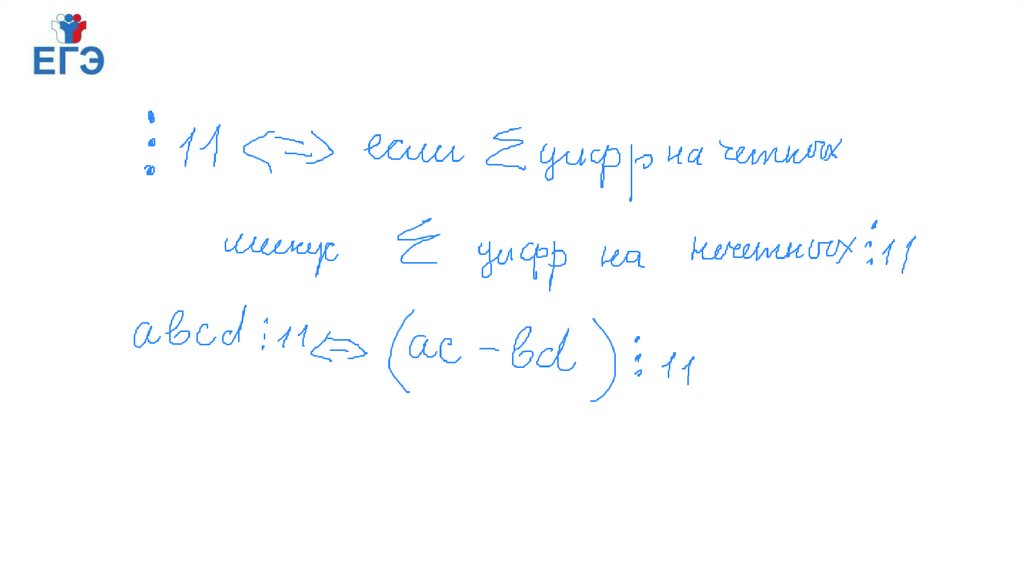 ЕГЭ
⋮ 11 <=> если Σ цифр на четных
минус Σ цифр на нечетных ⋮ 11
abcd ⋮ 11 <=> (ac - bd) ⋮ 11